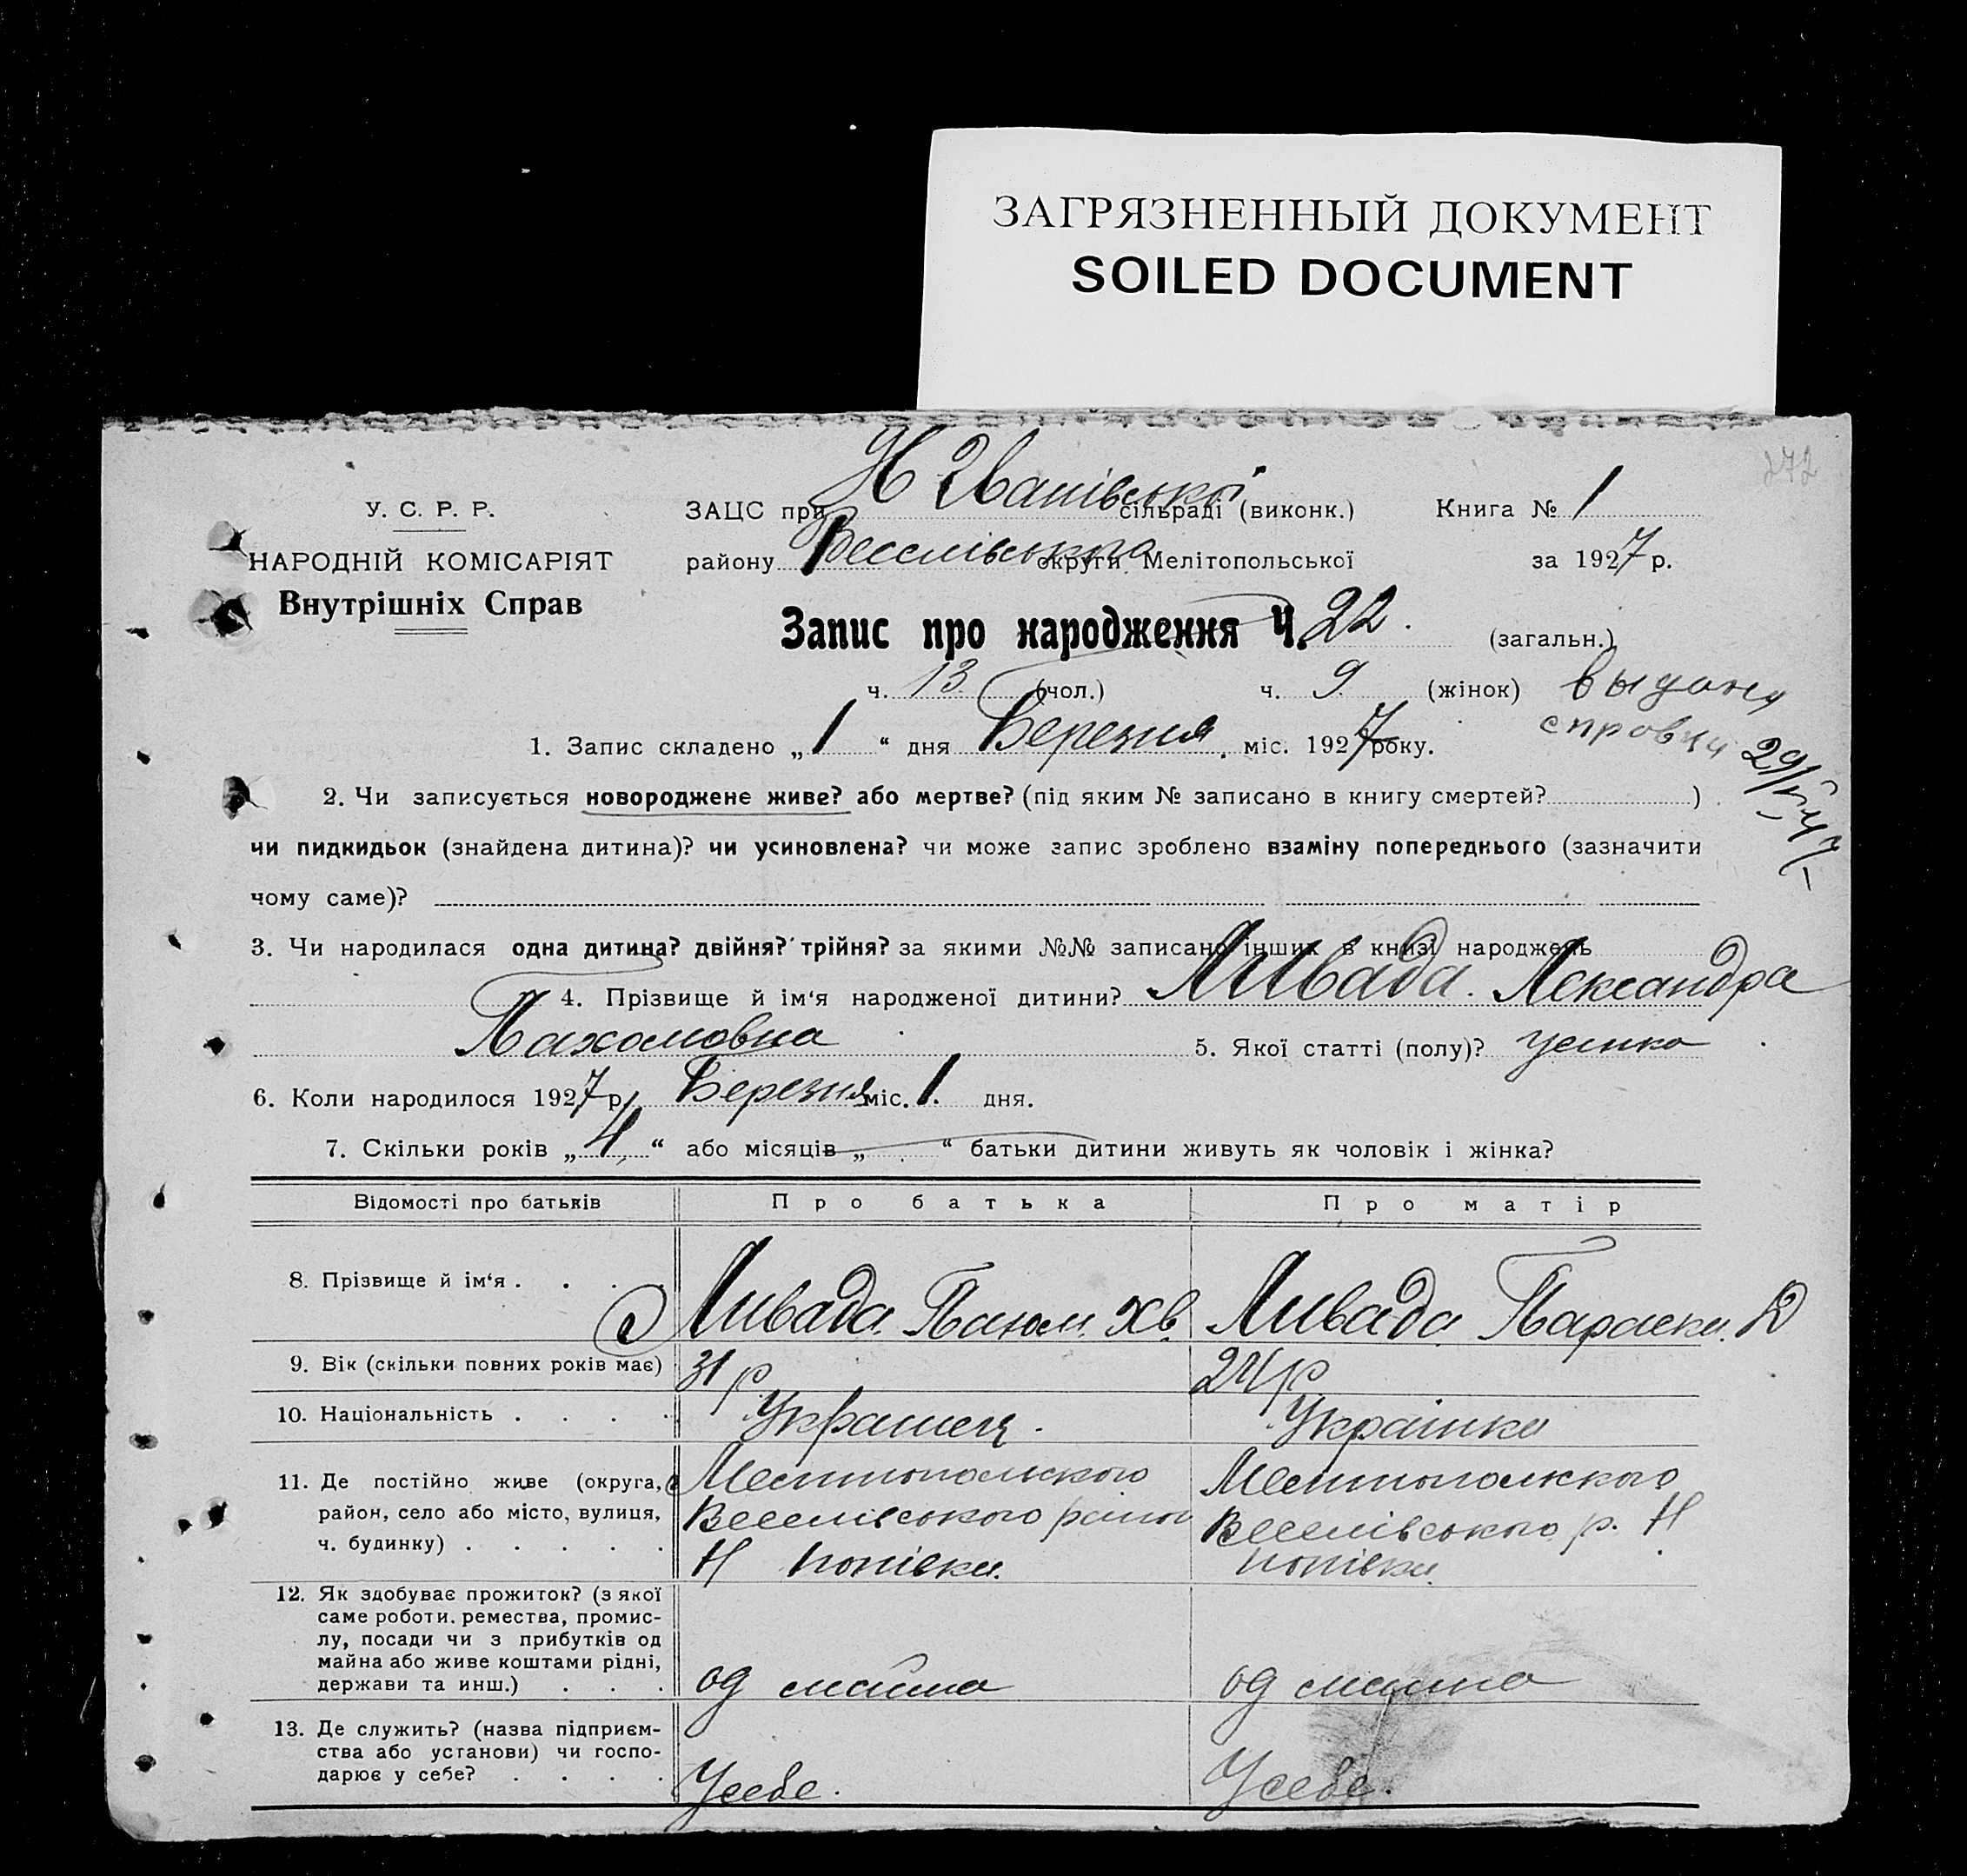 ЗАГРЯЗНЕННЫЙ ДОКУМЕНТ
SOILED DOCUMENT
272
У. С. Р. Р.
НАРОДНІЙ КОМІСАРІЯТ
Внутрішніх Справ
ЗАЦС при Н Іванівської сільраді (виконк.) Книга № 1
району Веселівського округи Мелітопольської за 1927 р.
Запис про народження Ч. 22. (загальн.)
ч. 13 (чол.) ч. 9 (жінок)
выдана
справка
1. Запис складено „1“ дня Березня міс. 1927 року.
2. Чи записується новороджене живе? або мертве? (під яким № записано в книгу смертей? )
чи пидкидьок (знайдена дитина)? чи усиновлена? чи може запис зроблено взаміну попереднього (зазначити
чому саме)?
3. Чи народилася одна дитина? двійня? трійня? за якими №№ записано інших в книзі народжень
4. Прізвище й ім‘я народженої дитини? Ливада. Лександра
Пахомовна 5. Якої статті (полу)?
6. Коли народилося 1927 р. Березня міс. 1. дня.
7. Скільки років „4“ або місяців „ “ батьки дитини живуть як чоловік і жінка?
Відомості про батьків Про батька Про матір
8. Прізвище й ім‘я . . . . Ливада. Пахом. Хв. Ливада Параска. Д
9. Вік (скільки повних років має) 31 р 24 р
10. Національність . . . . Українец. Українка
11. Де постійно живе (округа, Мелітопольского Мелітопольского
район, село або місто, вулиця, Веселівського район Веселівського р. Н
ч. будинку) . . . . . Н Попівка. Попівка.
12. Як здобуває прожиток? (з якої
саме роботи. ремества, промис-
лу, посади чи з прибутків од
майна або живе коштами рідні,
держави та инш.) . . . од майна од майна
13. Де служить? (назва підприєм-
ства або установи) чи госпо-
дарює у себе? . . . . Усебе. Усебе.